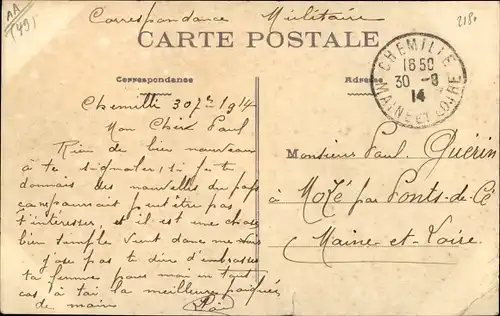 AA
1491
Correspondance Militaire
218
CARTE POSTALE
Correspondance
Adresse
CHEMILLÉ
16 50
30 - 9
14
MAINE ET LOIRE
Chemillé 30 7bre 1914
Mon Cher Paul
Rien de bien nouveau
à te signaler, si je te
donnais des nouvelles du pays
ça pourrait peut être pas
t'intéresser, et il est une chose
bien simple vient donc me
j'ose pas te dire d'embrasser
ta femme pour moi en tout
cas à toi la meilleure poignée
de main
Monsieur Paul Guérin
à Mozé par Ponts-de-Cé
Maine-et-Loire